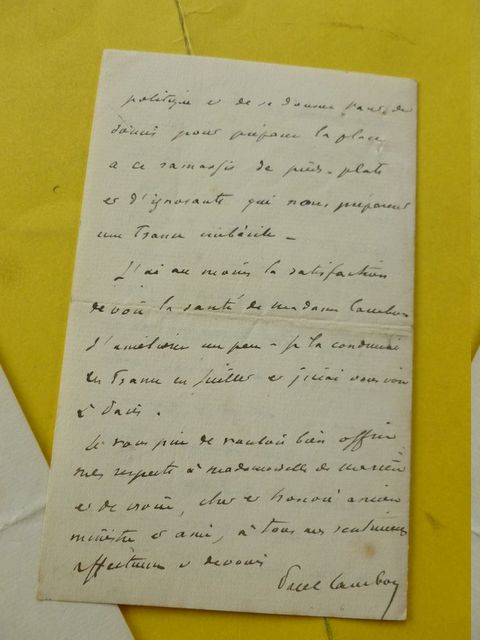 politique et de se donner tant de
soucis pour préparer la place
a ce ramassis de pieds-plats
et d'ignorants qui nous préparent
une France imbécile —
J'ai au moins la satisfaction
de voir la santé de madame Cambon
s'améliorer un peu — je la conduirai
en France en juillet et j'irai vous voir
à Paris.
Je vous prie de vouloir bien offrir
mes respects à mademoiselle de
et de croire, cher et honoré ancien
ministre et ami, à tous mes sentiments
affectueux et dévoués
Paul Cambon